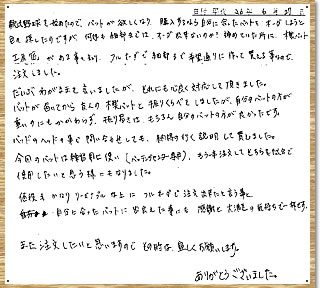 日付 平成 26年 6月 27日
軟式野球を始めたので、バットが欲しくなり 購入するなら自分に合ったバットをオーダーしようと
色々探したのですが、何処も細部までは、オーダー出来ないのが 諦めていた所に、榎バット
工房 があると事を知り、フルオーダーで細部まで希望通りに作って貰える事なので、
注文しました。
だいぶわがままを言いましたが、それにも心良く対応して頂きました。
バットが届いてから 友人の バットと振りくらべてしましたが、自分のバットの方が
重いのにもかかわらず、振り易さは、もちろん自分のバットの方が良かったです。
バットのヘッドの事で問い合わせしても、納得の行く説明して貰いました。
今回のバットは練習用に使い(バッティングセンター専用)、もう一本注文してどちらも試合で
使用したいと思う様にもなりました。
価格もかなりリーズナブルな上にフルオーダーで注文出来たと言う事と
自分に合ったバットに出会えた事にも 感謝と大満足の気持ちで一杯です。
また注文したいと思いますので その時は、宜しくお願いします。
ありがとうございました。